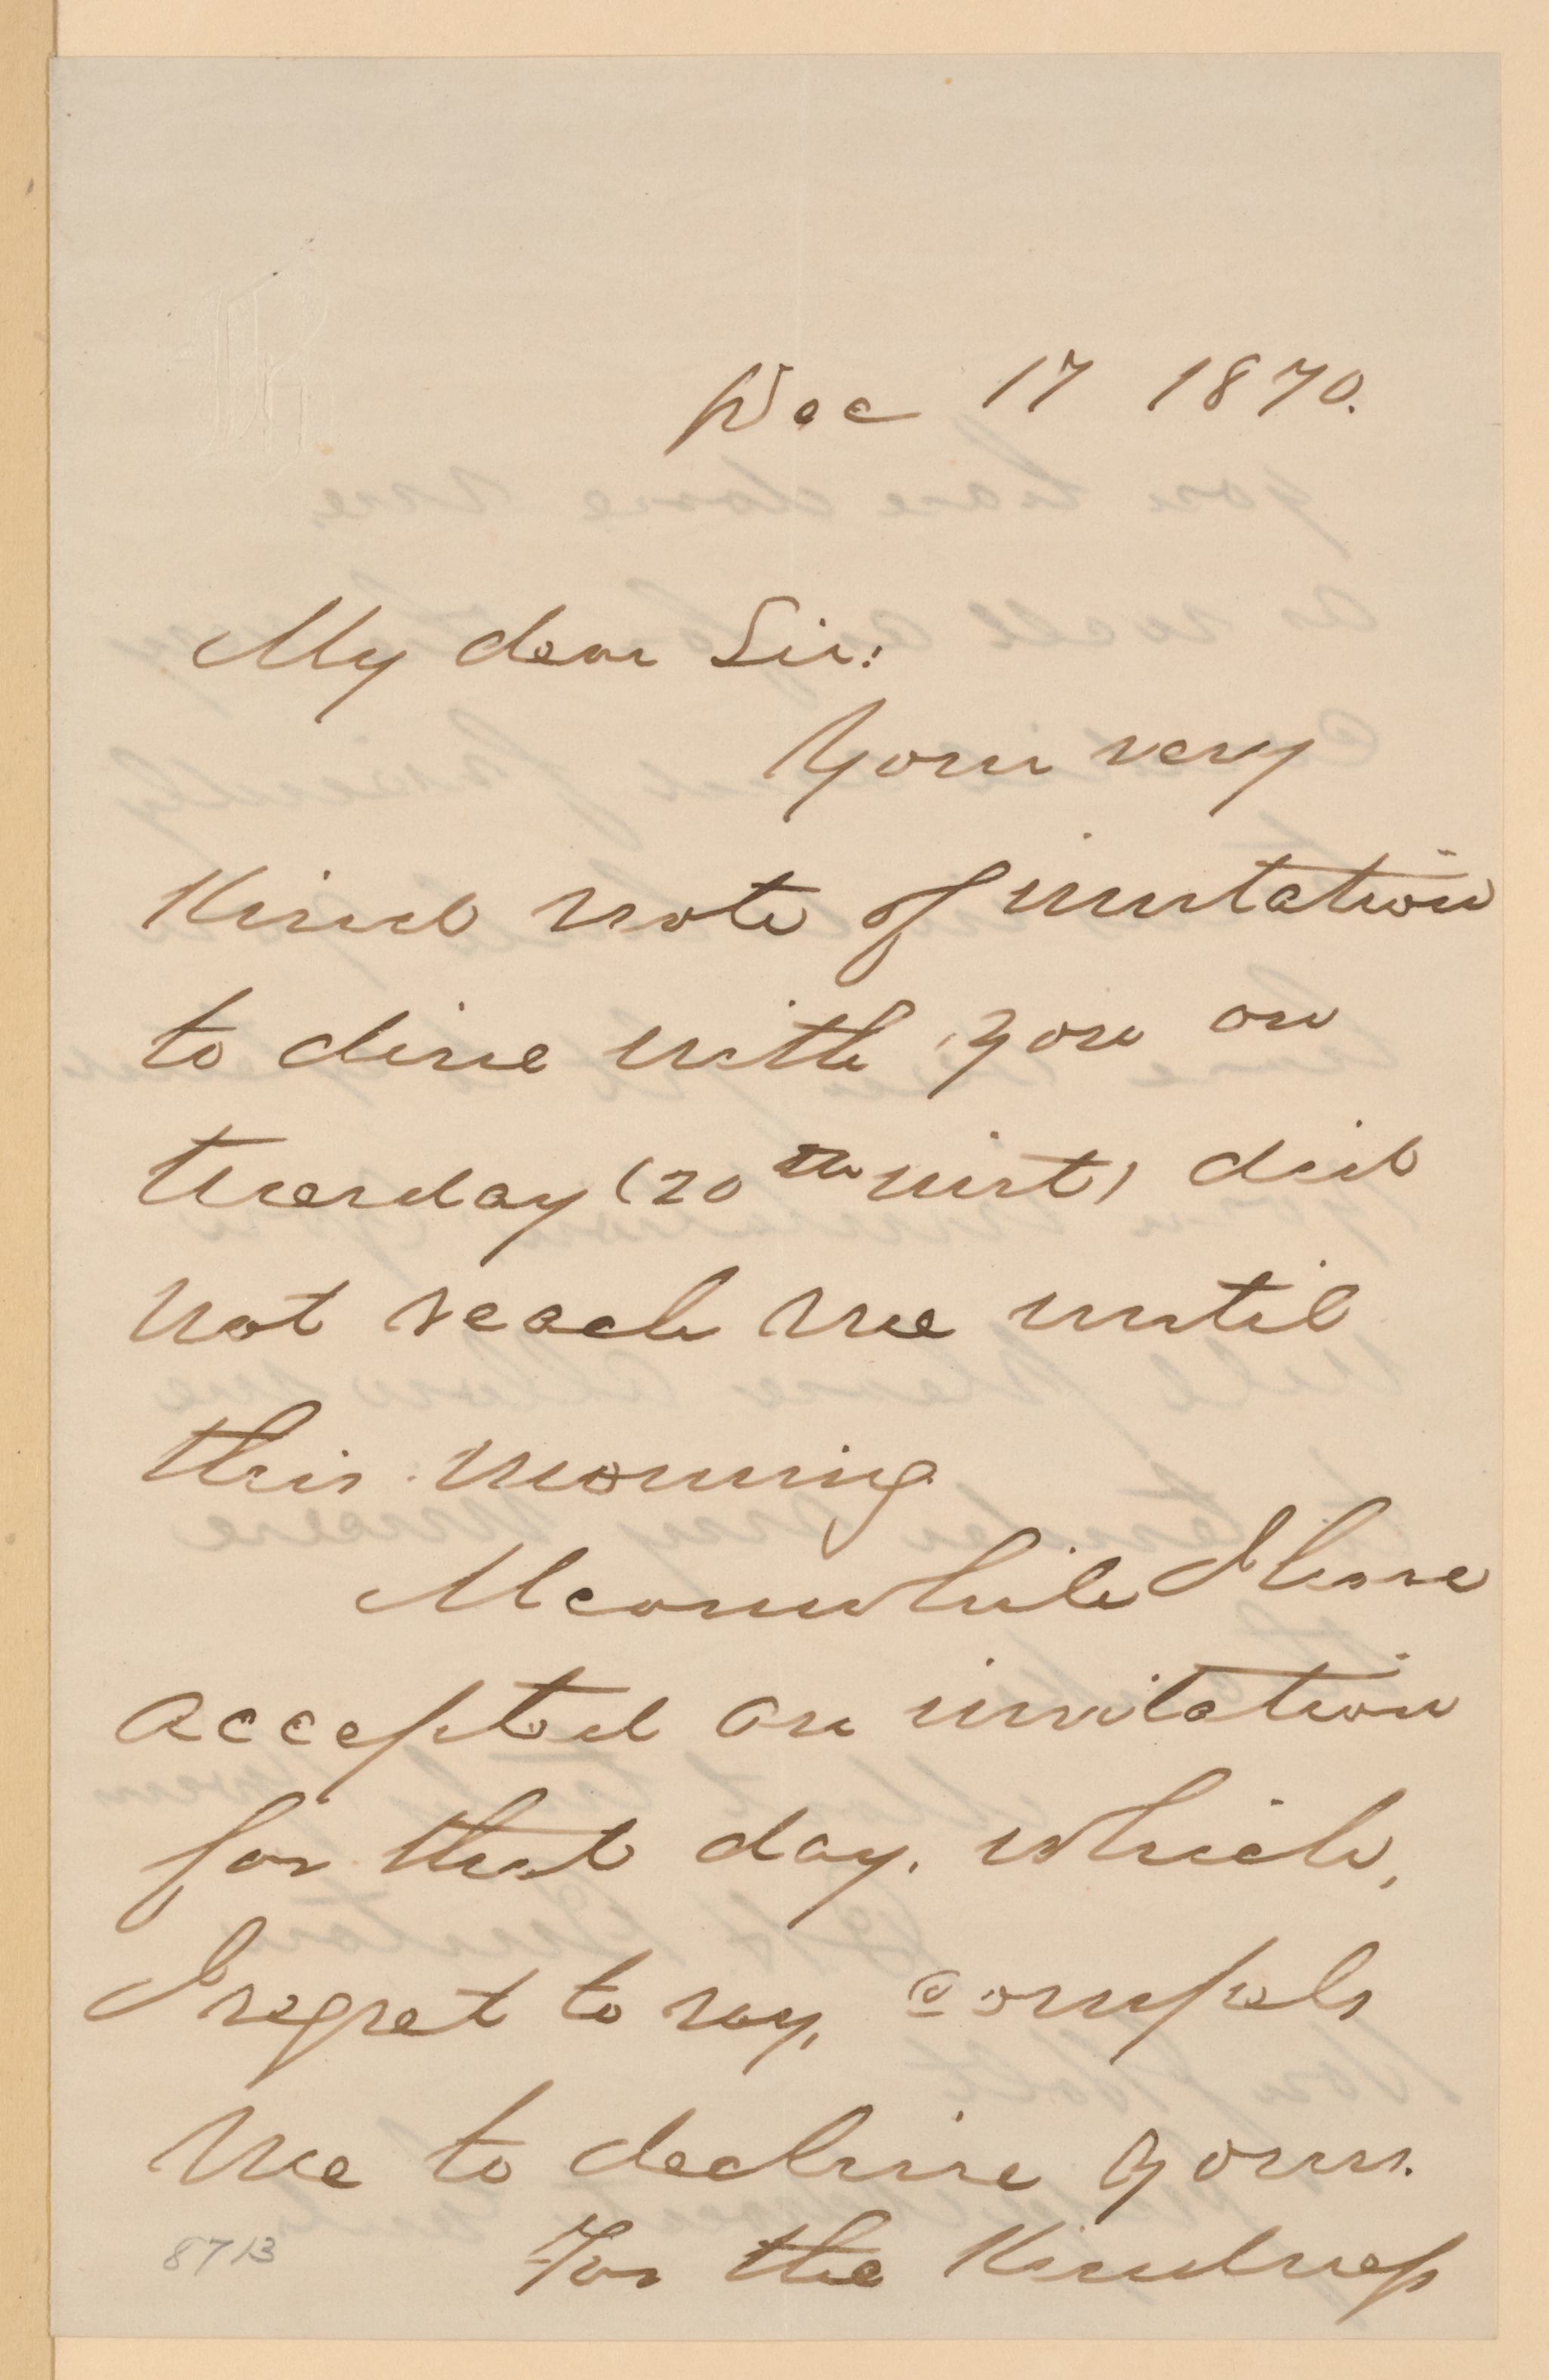 Dec 17 1870.
My dear Sir:
Your very
kind note of invitation
to dine with you on
tuesday (20th inst) did
not reach me until
this morning
Meanwhile I have
accepted an invitation
for that day, which,
I regret to say, compels
me to decline yours.
For the kindness
8713